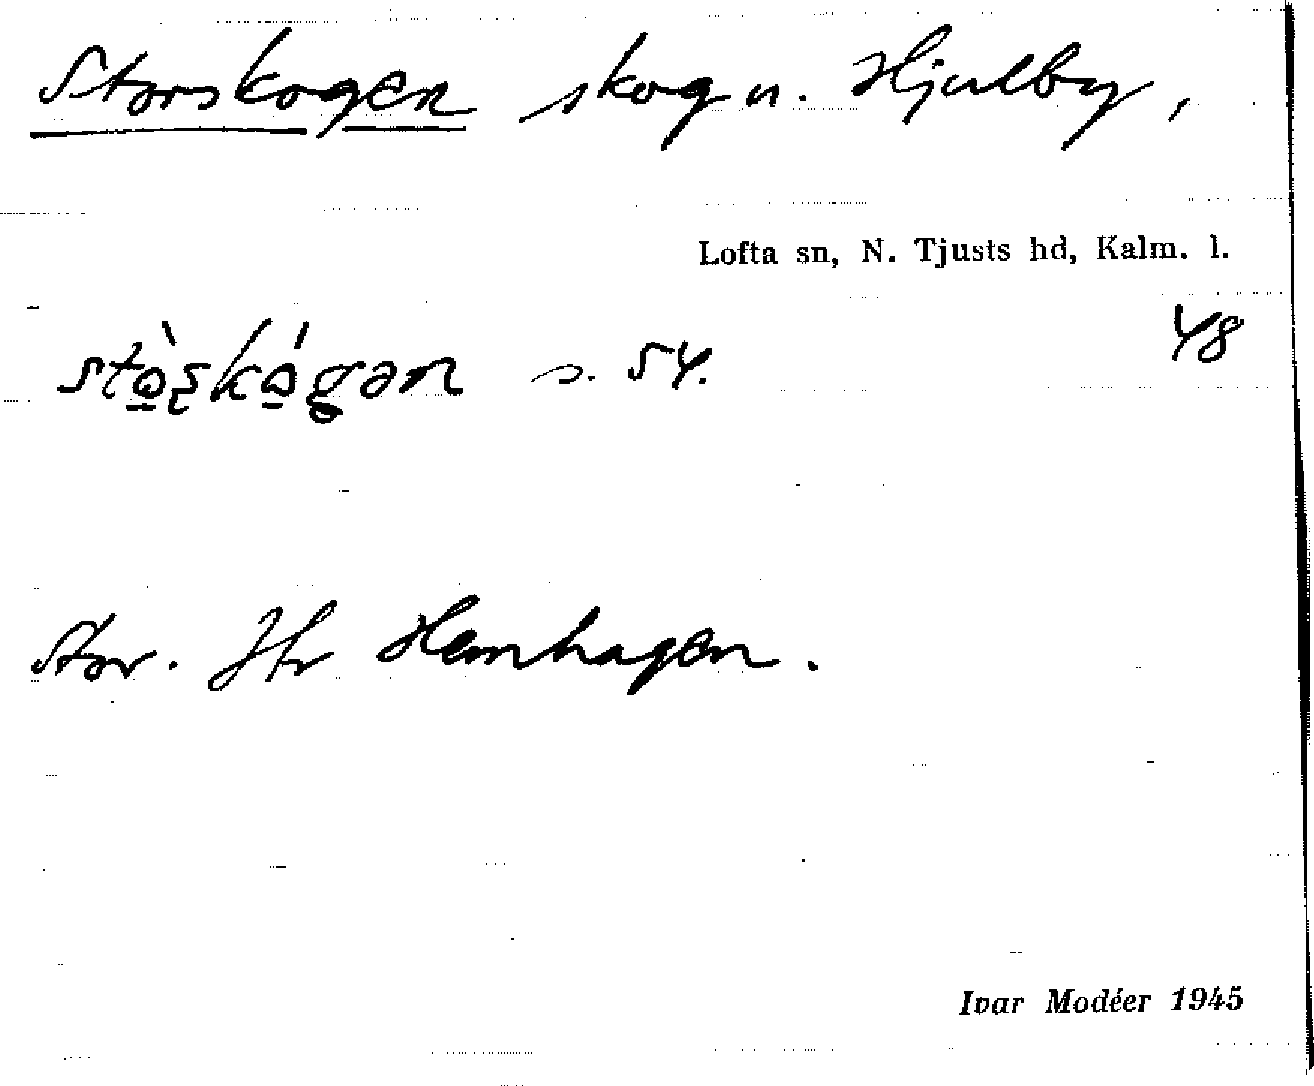 Storskogen skog n. Hjulby,
Lofta sn, N. Tjusts hd, Kalm. l.
48
s. 54.
Stor. Jfr Hemhagen.
Ivar Modéer 1945